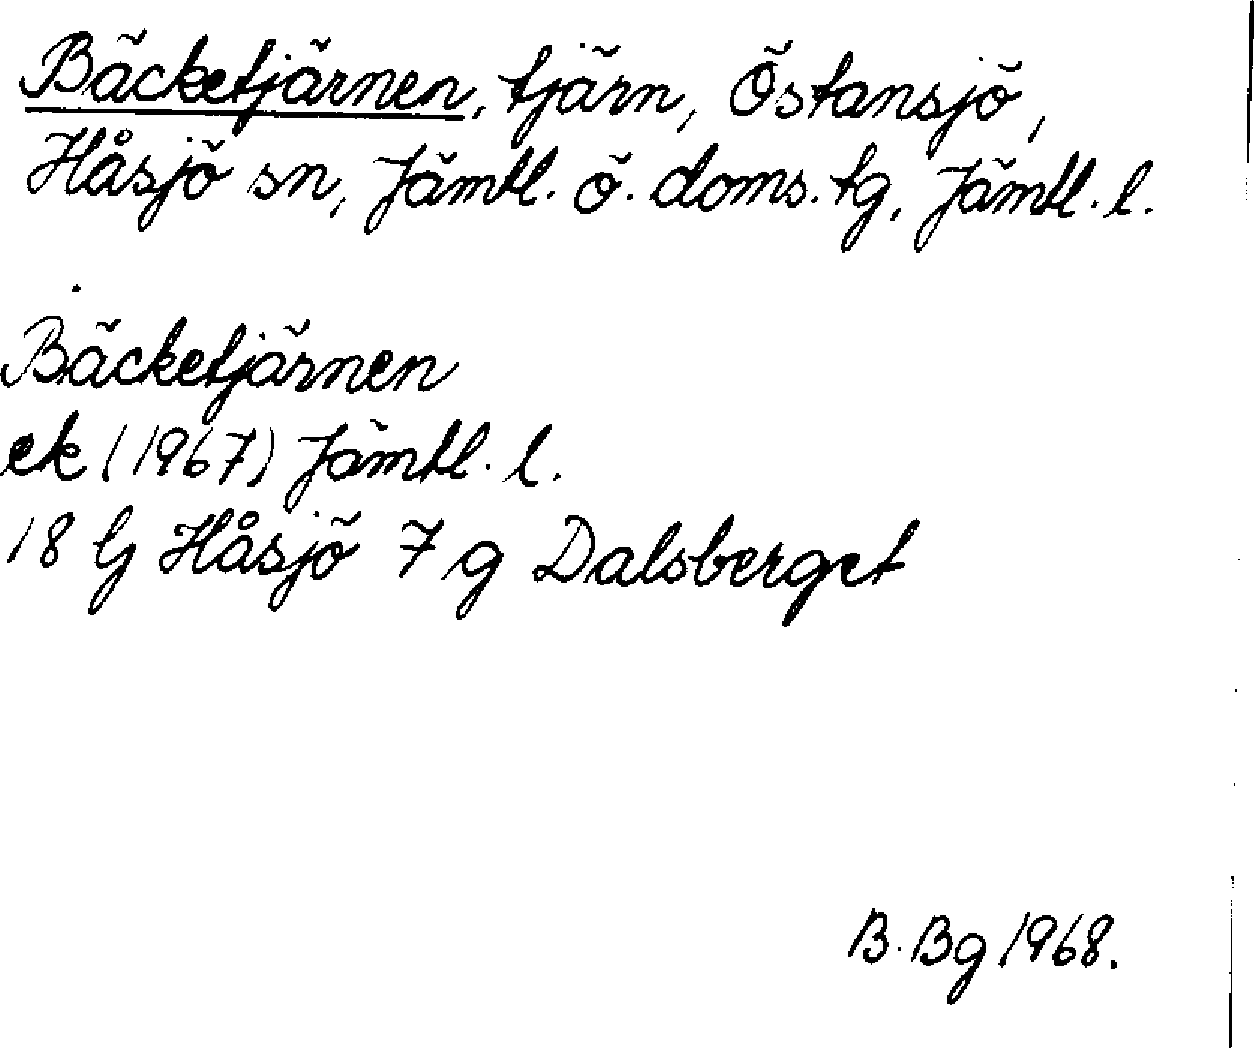 Bäcketjärnen, tjärn, Östansjö,
Håsjö sn, Jämtl. ö. doms. tg, Jämtl. l.
Bäcketjärnen
ek (1967) Jämtl. l.
18 G Håsjö 7 g Dalsberget
B. Bg 1968.